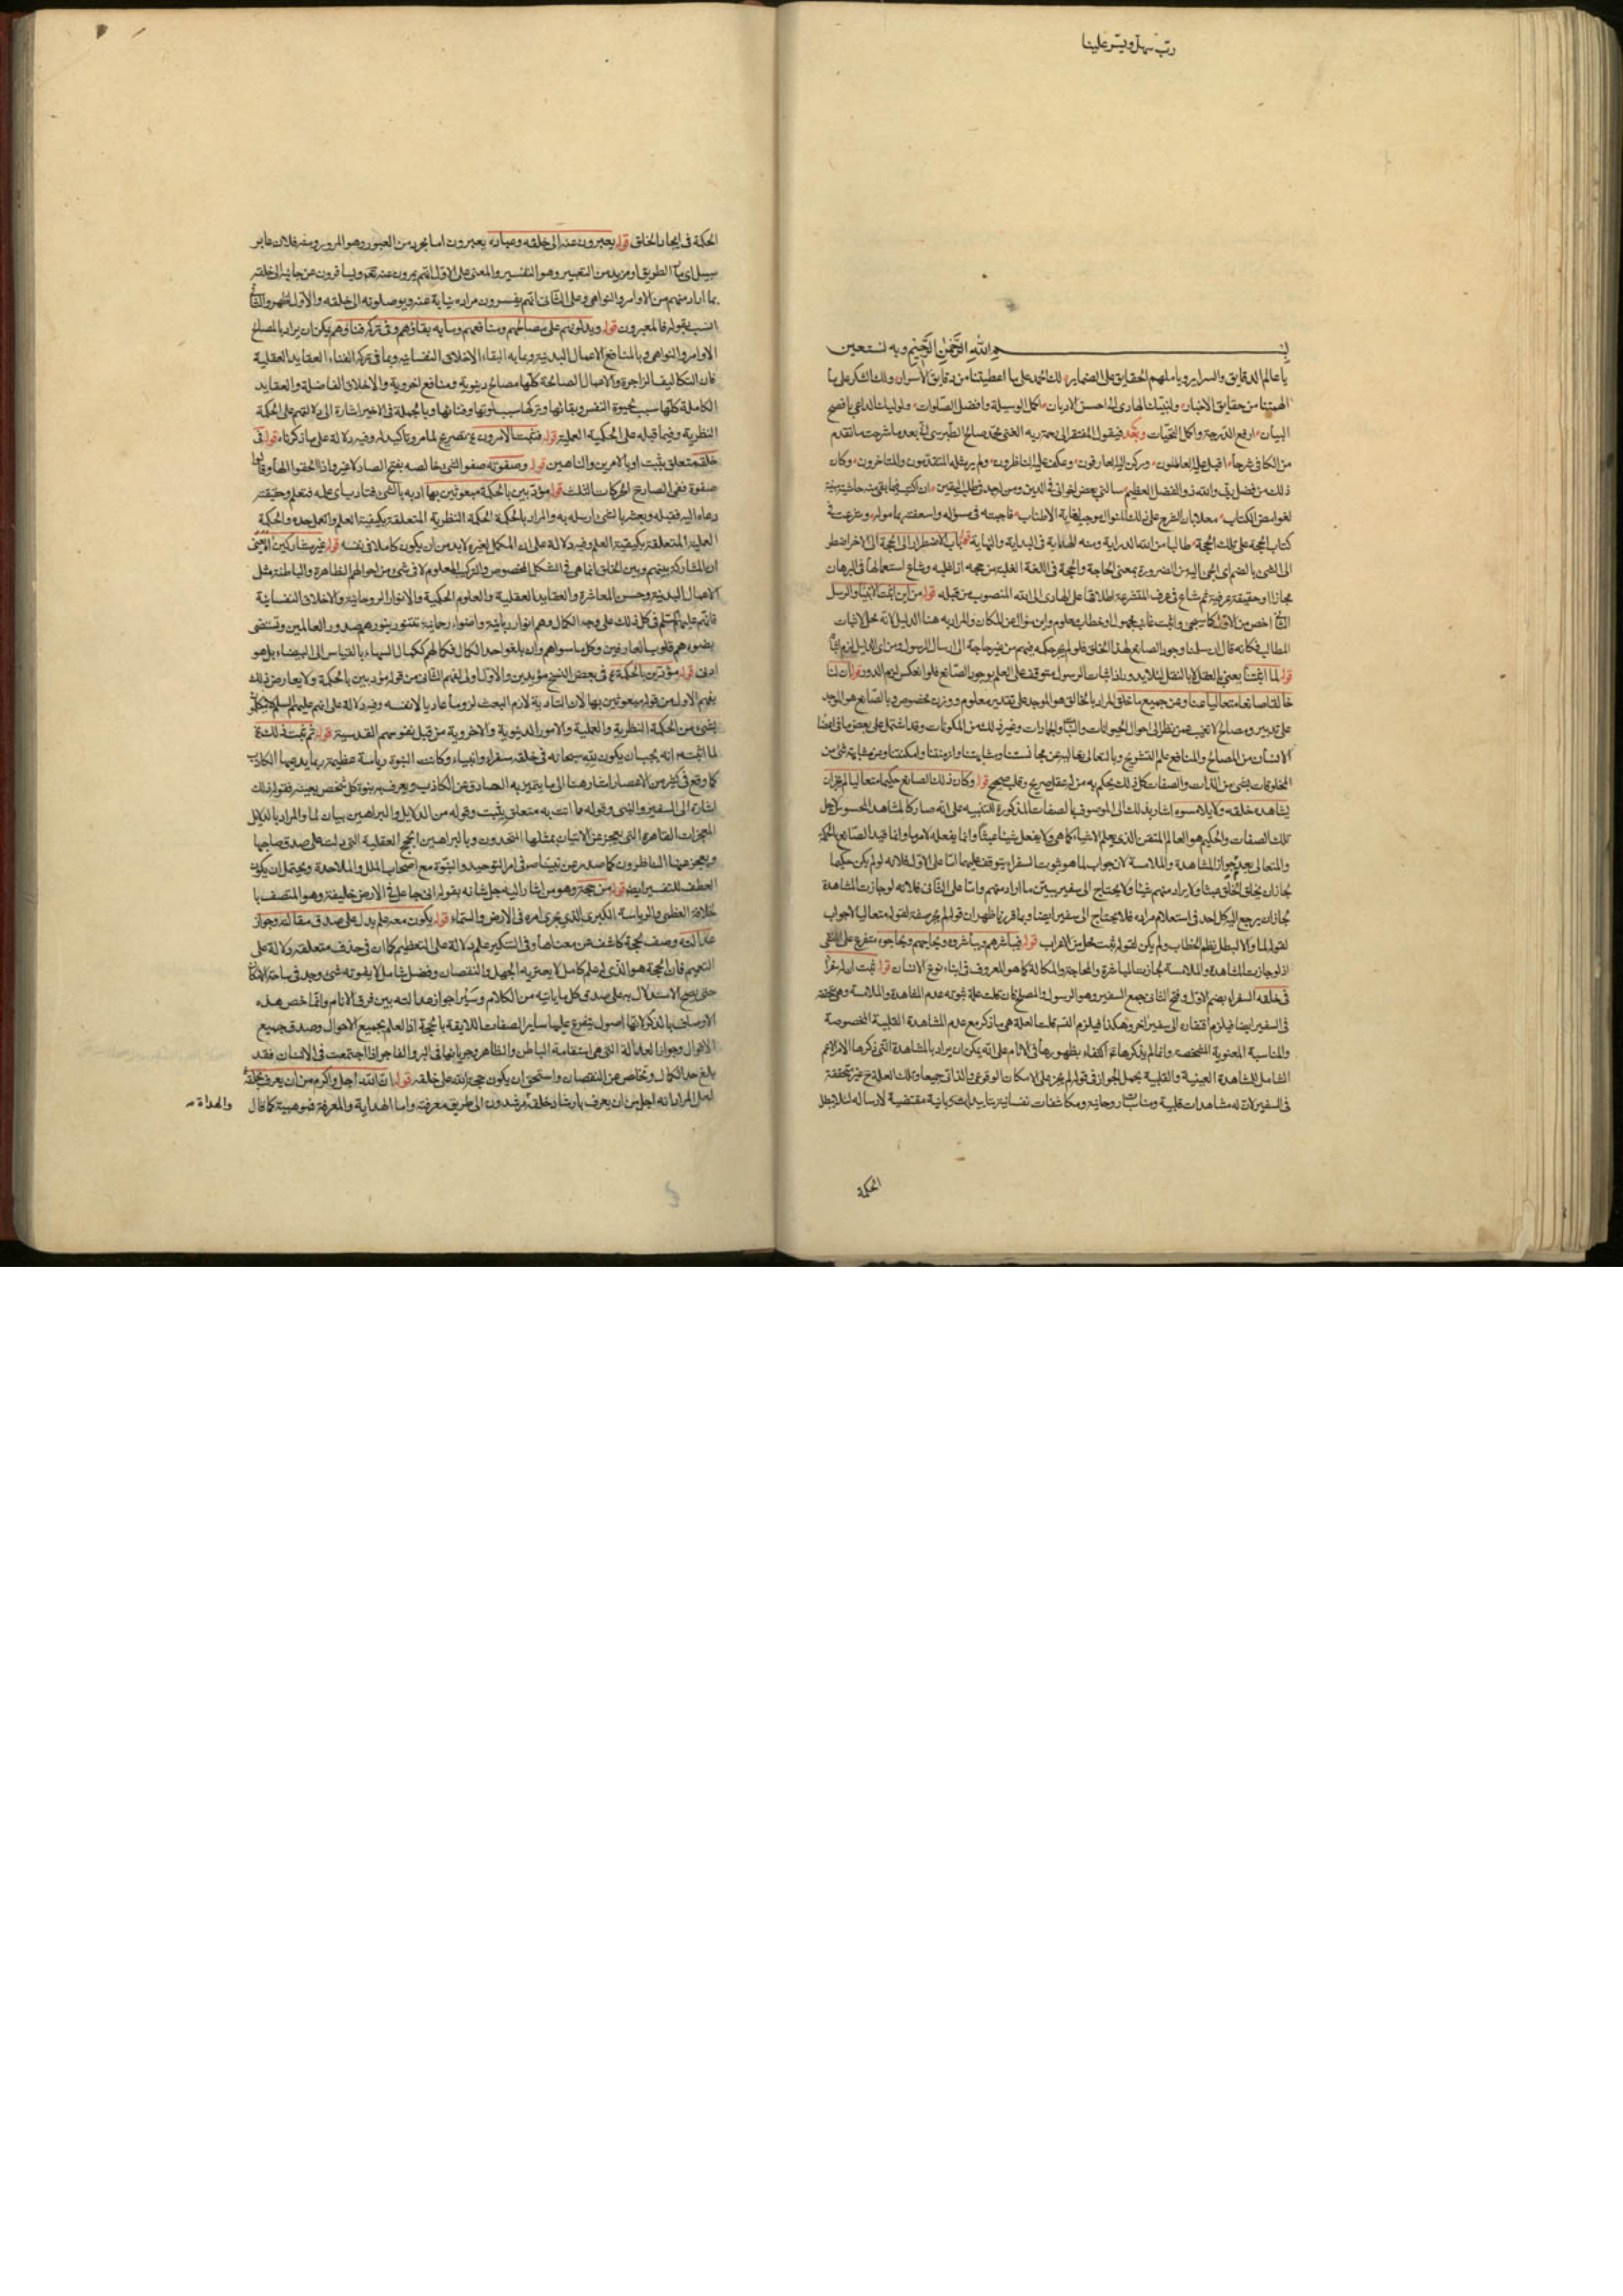 ربّ سهل ويسّر علينا
بسم الله الرحمن الرحيم وبه نستعين
يا عالم الدقايق والسراير ويا ملهم الحقايق على الضماير لك الحمد على ما اعطيتنا من دقايق الاسرار ولك الشكر على ما
الهمتنا من حقايق الاخبار ولنبيك الهادى لنا احسن الاديان اكمل الوسيلة وافضل الصلوات ولوليك الداعى بافصح
البيان ارفع الدرجة واكمل التحيات وبعد فيقول المفتقر الى رحمة ربه الغنى محمد صالح الطبرسى انى بعد ما شرحت ما تقدم
من الكافى شرحا اقبل عليه العاملون وركن اليه العارفون وعكف عليه الناظرون ولم ير مثله المتقدمون والمتاخرون وكان
ذلك من فضل ربى والله ذو الفضل العظيم سالنى بعض اخوانى فى الدين ومن اجد فى طلب اليقين ان اكتب فيما بقى منه حاشية مبينة
لغوامض الكتاب معللا بان الشرح على ذلك المنوال يوجب لغاية الاطناب فاجبته فى سؤله واسعفته بماموله وشرعت فى
كتاب الحجة على تلك الحجة طالبا من الله الدراية ومنه الهداية فى البداية والنهاية قوله باب الاضطرار الى الحجة الى الاخر اضطر
الى الشئ بالضم اى الجئ اليه من الضرورة بمعنى الحاجة والحجة فى اللغة الغلبة من حجه اذا غلبه وشاع استعمالها فى البرهان
مجازا او حقيقة عرفية ثم شاع فى عرف المتشرعة اطلاقها على الهادى الى الله المنصوب من قبله قوله من اين اثبت الانبياء والرسل
المطالب فكانه قال ارسلنا وجود الصانع لهذا الخلق فلو لم
قوله لما اثبتنا يعنى بالعقل لا بالنقل لئلا يدور اذ اثبات الرسول متوقف على العلم بوجود الصانع فلو انعكس لزم الدور قوله ان لنا
خالقا صانعا متعاليا عنا وعن جميع ما خلق المراد بالخالق هو الموجد على تقدير معلوم ووزن مخصوص وبالصانع هو الموجد
على تدبير ومصالح لا تخفى على من نظر الى احوال الحيوانات والنبات والجمادات وغير ذلك من المكونات وقد اشتمل على بعض ما فى اعضاء
الانسان من المصالح والمنافع علم التشريح وبالمتعالى تعاليه عن مجانستنا ومشابهتنا وازمنتنا وامكنتنا وعن مشابهة شئ من
المخلوقات بشئ من الذات والصفات كل ذلك يحكم به من له عقل صريح وقلب صحيح قوله وكان ذلك الصانع حكيما متعاليا لم يجز ان
يشاهده خلقه ولا يلامسوه اشار بذلك الى الموصوف بالصفات المذكورة للتنبيه على انه صار كالمشاهد المحسوس لاجل
تلك الصفات والحكيم هو العالم المتقن الذى يعلم الاشياء كما هى ولا يفعل شيئا عبثا وانما يفعله لامر ما وانما قيد الصانع بالحكمة
والمتعالى بعد جواز المشاهدة والملامسة لان جواب لما هو ثبوت السفراء يتوقف عليهما اما على الاول فلانه لو لم يكن حكيما
لجاز ان يخلق الخلق عبثا ولا يراد منهم شيئا ولا يحتاج الى سفير يبين ما اراد منهم واما على الثانى فلانه لو جازت المشاهدة
لجاز ان يرجع اليه كل احد فى استعلام مراده فلا يحتاج الى سفير ايضا
قوله فيباشرهم ويباشروه ويحاجهم ويحاجوه متفرع على المنفى
اذ لو جازت المشاهدة والملامسة لجازت المباشرة والمحاجة والمكالمة كما هو المعروف فى ابناء نوع الانسان قوله ثبت ان له سفراء
فى خلقه السفراء بضم الاول وفتح الثانى جمع السفير وهو الرسول والمصلح فان قلت علة ثبوته عدم المشاهدة والملامسة وهى متحققة
فى السفير ايضا فيلزم افتقاره الى سفير اخر وهكذا فيلزم التسلسل قلت العلة هى ما ذكر مع عدم المشاهدة القلبية المخصوصة
والمناسبة المعنوية المشخصة وانما لم يذكرها اكتفاء بظهورها فى الانام على انه يمكن ان يراد بالمشاهدة التى ذكرها الامام الاعم
الشامل للمشاهدة العينية والقلبية بحمل الجواز فى قوله لم يجز على الامكان الوقوعى والذاتى جميعا وتلك العلة ح غير متحققة
فى السفير لان له مشاهدات قلبية ومناسبات روحانية ومكاشفات نفسانية بتاييدات ربانية مقتضية لارساله لئلا يبطل
الحكمة
الحكمة فى ايجاد الخلق قوله يعبرون عنه الى خلقه وعباده يعبرون اما مجرد من العبور وهو المرور ومنه فلان عابر
سبيل اى مار الطريق او مزيد من التعبير وهو التفسير والمعنى على الاول انهم يمرون عنه تعالى ويسافرون من جانبه الى خلقه
بما اراد منهم من الاوامر والنواهى وعلى الثانى انهم يفسرون مراده نيابة عنه ويوصلونه الى خلقه والاول اظهر والثانى
انسب بقوله فالمعبرون قوله ويدلونهم على مصالحهم ومنافعهم وما به بقاؤهم وفى تركه فناؤهم يمكن ان يراد بالمصالح
الاوامر والنواهى وبالمنافع الاعمال البدنية وبما به البقاء الاخلاق النفسانية وبما فى تركه الفناء العقايد العقلية
فان التكاليف الزاجرة والاعمال الصالحة كلها مصالح دنيوية ومنافع اخروية والاخلاق الفاضلة والعقايد
الكاملة كلها سبب لحيوة النفس وبقائها وتركها سبب لموتها وفنائها وبالجملة فى الاخير اشارة الى دلالتهم على الحكمة
النظرية وفيما قبله على الحكمة العملية قوله فثبت الامرون تصريح لما مر وتاكيد له وفيه دلالة على ما ذكرناه قوله فى
خلقه متعلق بثبت او بالامرين والناهين قوله وصفوته صفو الشئ خالصه بفتح الصاد لا غير واذا الحقوا الهاء وقالوا
صفوة ففى الصاد ح الحركات الثلث قوله مؤدبين بالحكمة مبعوثين بها ادبه بالشئ فتادب اى علمه فتعلم وحقيقته
دعاه اليه فقبله وبعثه بالشئ ارسله به والمراد بالحكمة الحكمة النظرية المتعلقة بكيفية العلم والعمل جده والحكمة
العملية المتعلقة بكيفية العلم وفيه دلالة على ان المكمل لغيره لا بد من ان يكون كاملا فى نفسه قوله غير مشاركين للناس
ان المشاركة بينهم وبين الخلق انما هى فى الشكل المخصوص والتركيب المعلوم لا فى شئ من احوالهم الظاهرة والباطنة مثل
الاعمال البدنية وحسن المعاشرة والعقايد العقلية والعلوم الحكمية والانوار الروحانية والاخلاق النفسانية
فانهم عليهم السلام فى كل ذلك على وجه الكمال وهم انوار ربانية واضواء رحمانية تتنور بنورهم صدور العالمين وتستضئ
بضوءهم قلوب العارفين وكل ما سواهم وان بلغوا حد الكمال فكمالهم ككمال السهاء بالقياس الى البيضاء بل هو
ادون قوله مؤدبين بالحكمة فى بعض النسخ مؤيدين والاول اولى لفهم الثانى من قوله مؤدبين بالحكمة ولا يعارض ذلك
بفهم الاول من قوله مبعوثين بها لان التادية لازم البعث لزوما عاديا لا نفسه وفيه دلالة على انهم عليهم السلام لا يتكلمون
بشئ من الحكمة النظرية والعملية والامور الدنيوية والاخروية من قبل نفوسهم القدسية قوله ثم ثبت ذلك
لما اثبت انه يجب ان يكون لله سبحانه فى خلقه سفراء وانبياء وكانت النبوة رياسة عظيمة ربما يدعيها الكاذب
كما وقع فى كثير من الاعصار اشار هنا الى ما يتميز به الصادق عن الكاذب ويعرف به نبوة كل شخص بعينه فقوله ذلك
اشارة الى السفير والنبى وقوله مما اتت به متعلق بثبت وقوله من الدلايل والبراهين بيان لما والمراد بالدلايل
المعجزات القاهرة التى يعجز عن الاتيان بمثلها المتحدون وبالبراهين الحجج العقلية التى دلت على صدق صاحبها
ويعجز عنها الناظرون كما صدر عن نبينا ص فى امر التوحيد والنبوة مع اصحاب الملل والملاحدة ويحتمل ان يكون
العطف للتفسير ايضا قوله من حجة وهو من اشار اليه جل شانه بقوله انى جاعل فى الارض خليفة وهو المتصف با
لخلافة العظمى والرياسة الكبرى الذى يجرى امره فى الارض والسماء قوله يكون معه علم يدل على صدق مقالته وجواز
عدالته وصف لحجة كاشف عن معناها وفى التنكير علم دلالة على التعظيم كما ان فى حذف متعلقه دلالة على
التعميم فان الحجة هو الذى له علم كامل لا يعتريه الجهل والنقصان وفضل شامل لا يفوته شئ وجد فى ساحة الامكان
حتى يصح الاستدلال به على صدق كل ما ياتيه من الكلام وسيرا جواز عدالته بين فرق الانام وانما خص هذه
الاوصاف بالذكر لانها اصول يتفرع عليها ساير الصفات اللايقة بالحجة اذ العلم بجميع الاحوال وصدق جميع
الاقوال وجواز العدالة التى هى استقامة الباطن والظاهر وجريانها فى البر والفاجر اذا اجتمعت فى الانسان فقد
بلغ حد الكمال وتخلص عن النقصان واستحق ان يكون حجة الله على خلقه قوله ان الله اجل واكرم من ان يعرف بخلقه
لعل المراد انه اجل من ان يعرف بارشاد خلقه مرشدون الى طريق معرفته واما الهداية والمعرفة فموهبية كما قال
والهداة